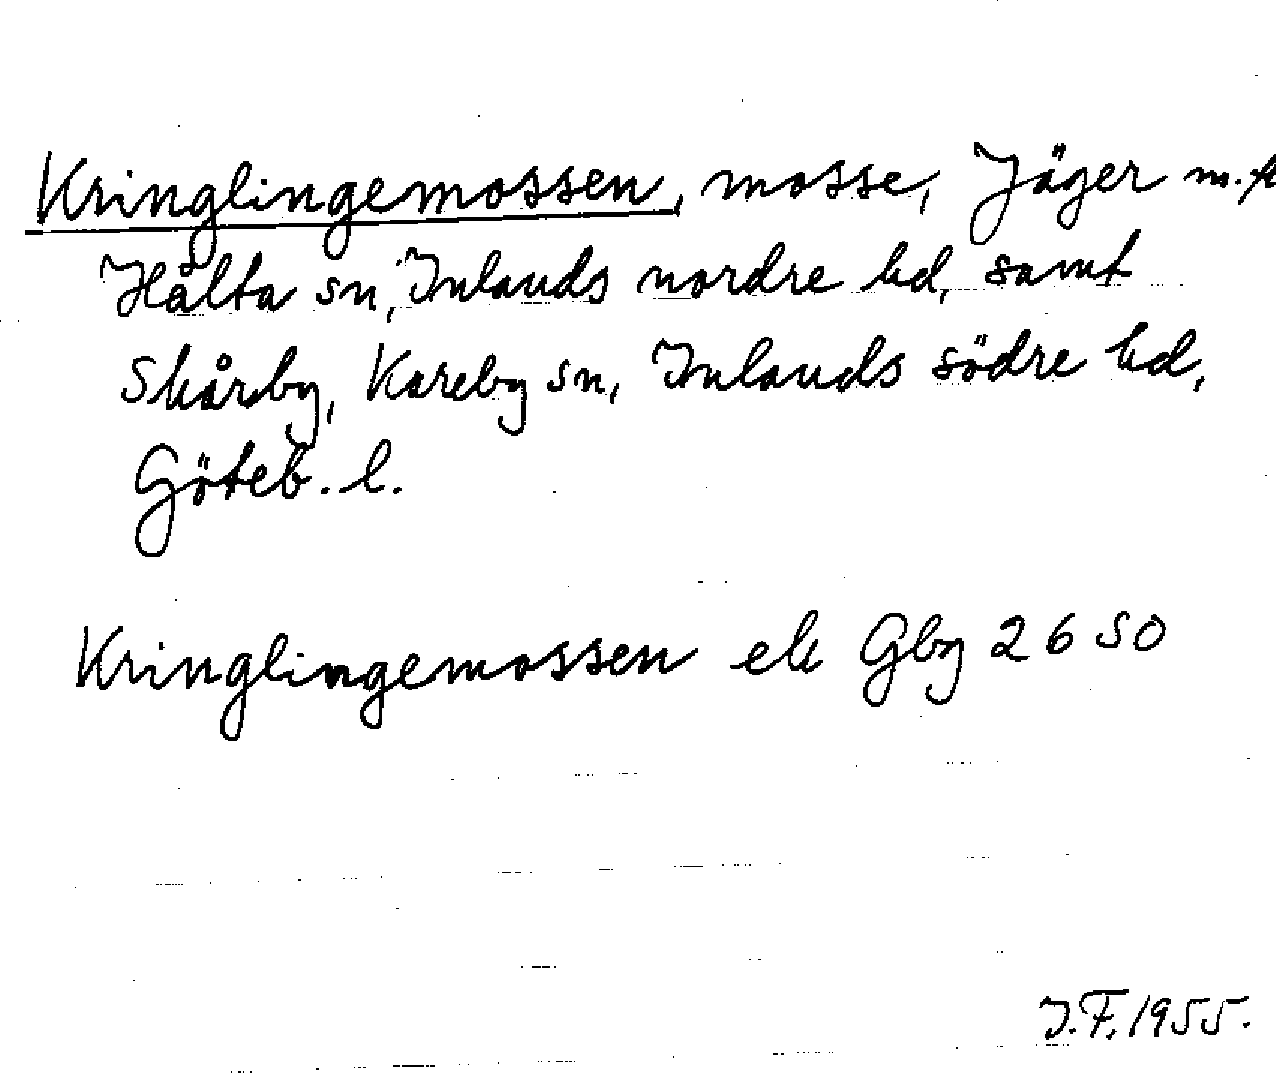 Kringlingemossen, mosse, Jäger m.fl
Hålta sn, Inlands nordre hd, samt
Skårby, Kareby sn, Inlands södre hd,
Göteb. l.
Kringlingemossen ek Gbg 2650
J.F. 1955.